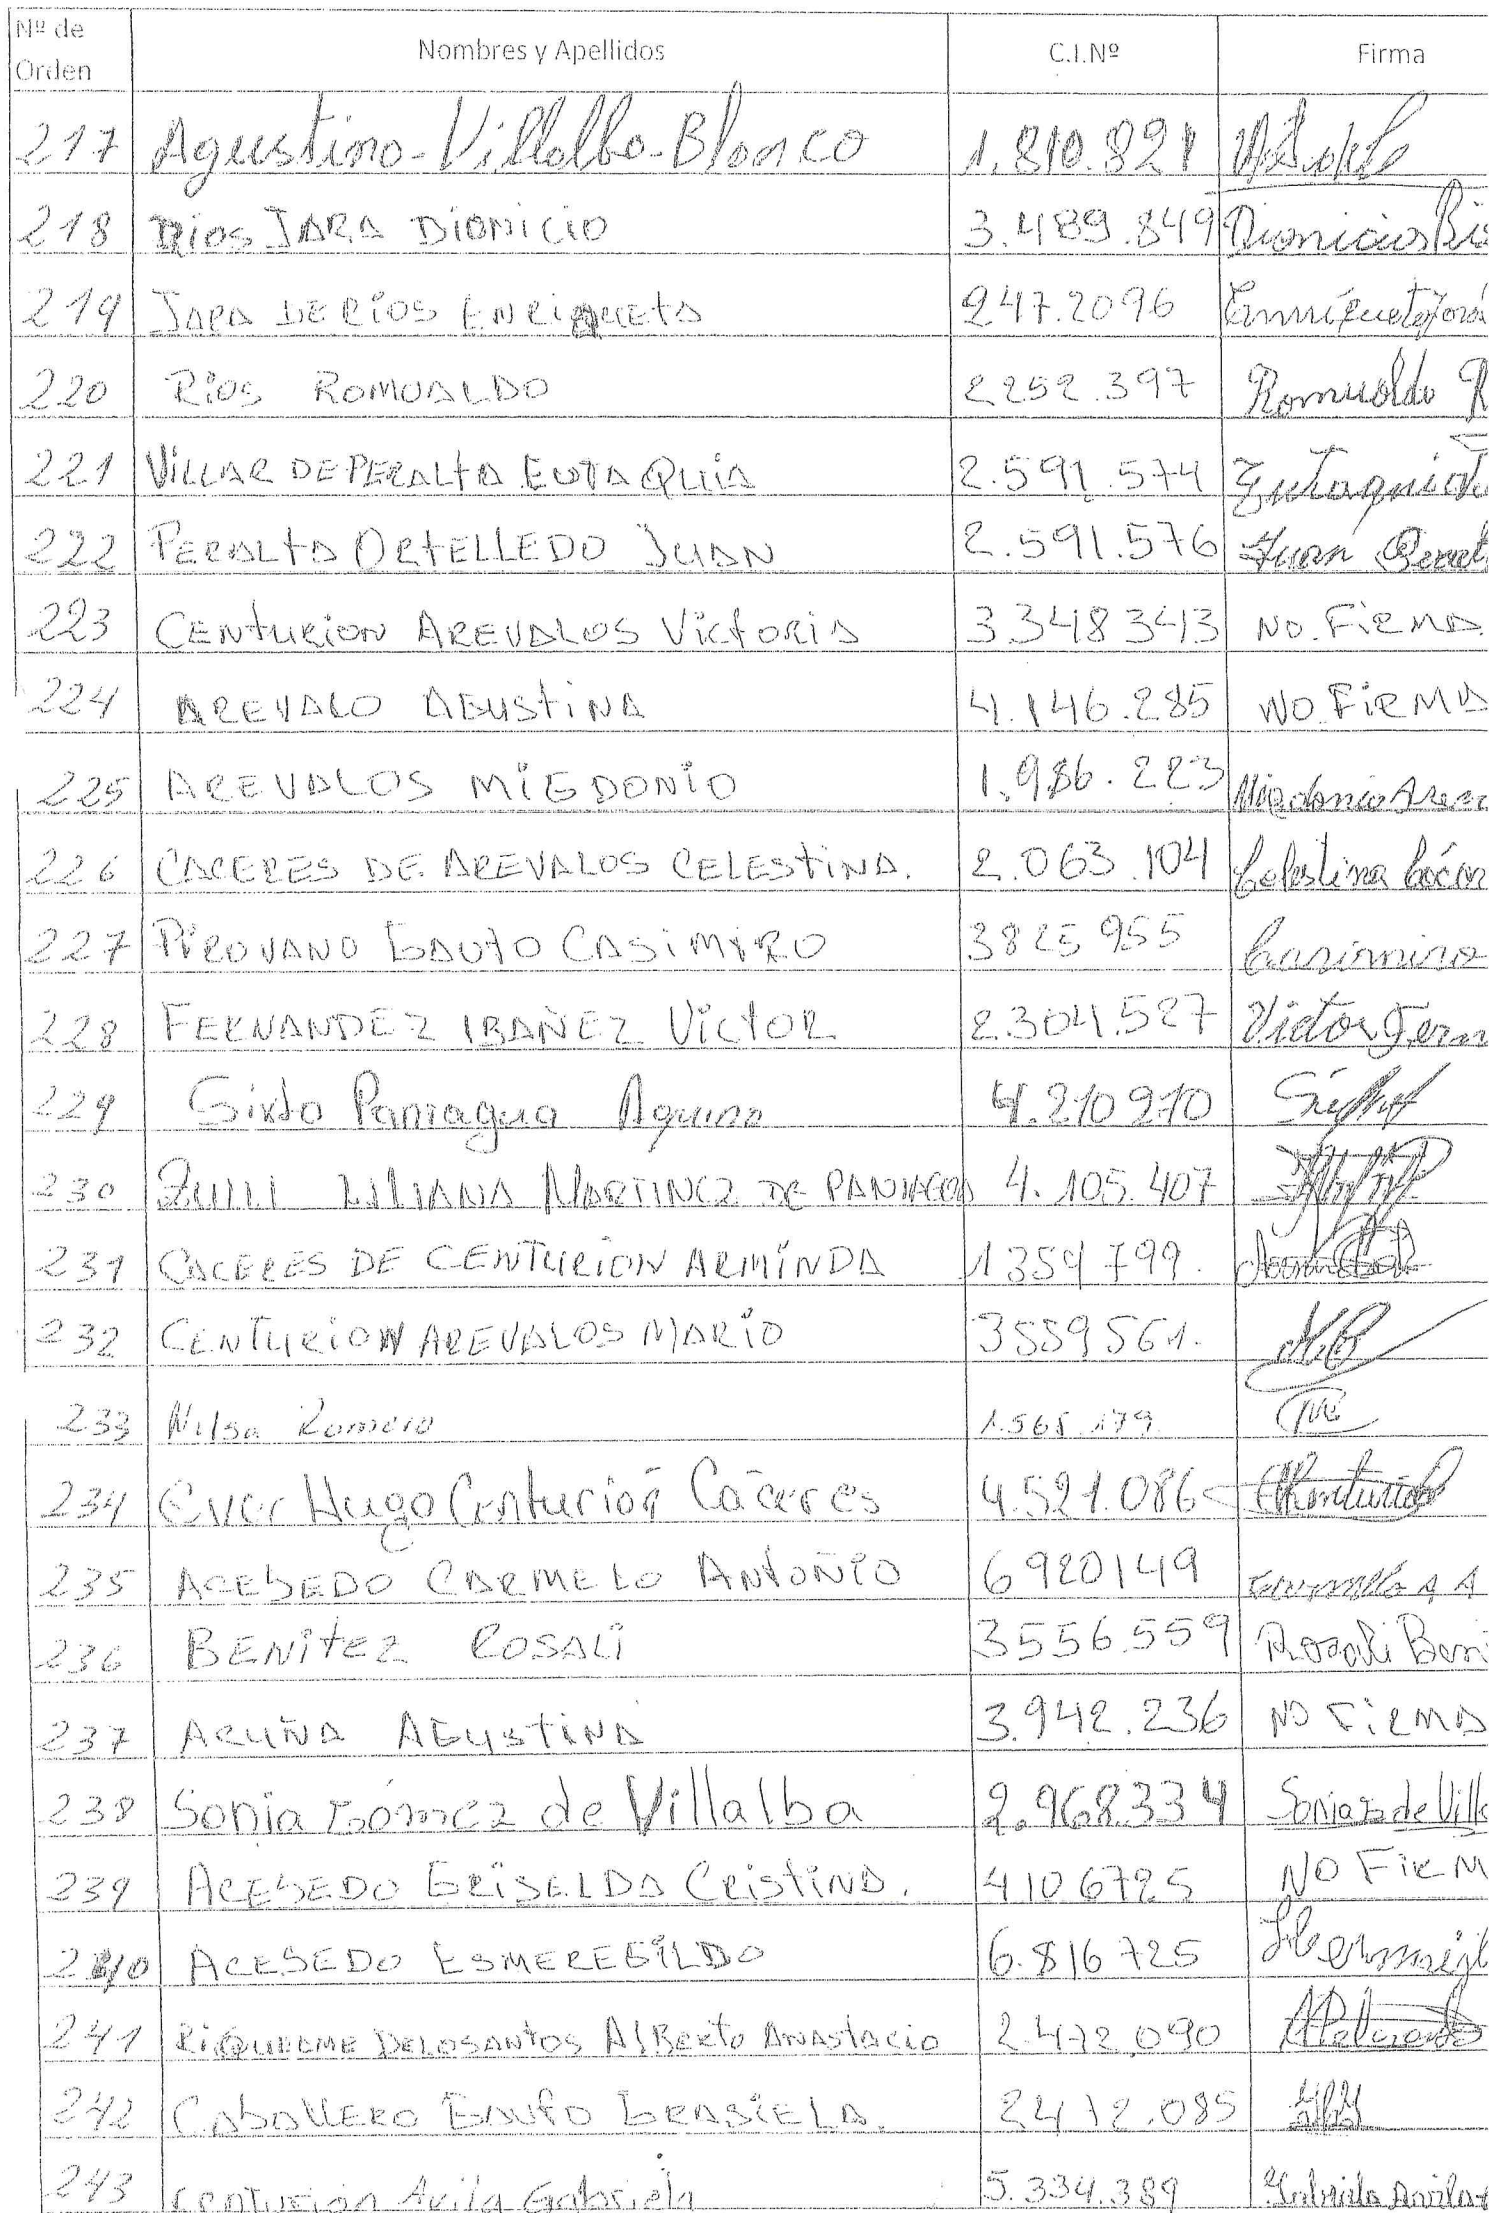 Nº de Orden Nombres y Apellidos C.I.Nº Firma
217 Agustino-Villalba-Blanco 1.810.821
218 Rios JARA DIONICIO 3.489.849 Dionicio Rio
219 JARA DE RÍOS ENRIQUETA 247.2096 Enriqueta Jara
220 Ríos ROMUALDO 2252.397 Romualdo R
221 VILLAR DE PERALTA EUTAQUIA 2.591.574 Eutaquia
222 PERALTA ORTELLEDO JUAN 2.591.576 Juan Peralt
223 CENTURION AREVALOS VICTORIA 3.348343 NO.FIRMA.
224 AREVALO AGUSTINA 4.146.285 NO.FIRMA
225 AREVALOS MIGDONIO 1.986.223 Migdonio Arev
226 CACERES DE AREVALOS CELESTINA. 2.063.104 Celestina Cácer
227 PIROVANO GAUTO CASIMIRO 3825955 Casimiro
228 FERNANDEZ IBAÑEZ VICTOR 2.304.527 Victor Fern
229 Sixto Paniagua Aquino 4.210210
230 ZULLI LILIANA MARTINEZ DE PANIAGUA 4.105.407
231 CACERES DE CENTURION ARMINDA 1359799.
232 CENTURION AREVALOS MARIO 3559561.
233 Nilsa Romero 1.565.179
234 Ever Hugo Centurión Cáceres 4.521.086
235 ACEBEDO CARMELO ANTONIO 6920149
236 BENITEZ ROSALI 3556.559 Rosali Beni
237 ACUÑA AGUSTINA 3.942.236 NO FIRMA
238 Sonia Gómez de Villalba 2.968.334 Sonia G de Villa
239 ACEBEDO GRISELDA CRISTINA. 4106725 NO FIRM
240 ACEBEDO ESMEREGILDO 6.816725
241 RIQUELME DELOSANTOS AlBERTO ANASTACIO 2.472.090
242 CABALLERO GAUTO GRASIELA. 2412.085
243 Centurión Avila Gabriela 5.334.389 Gabriela Avila